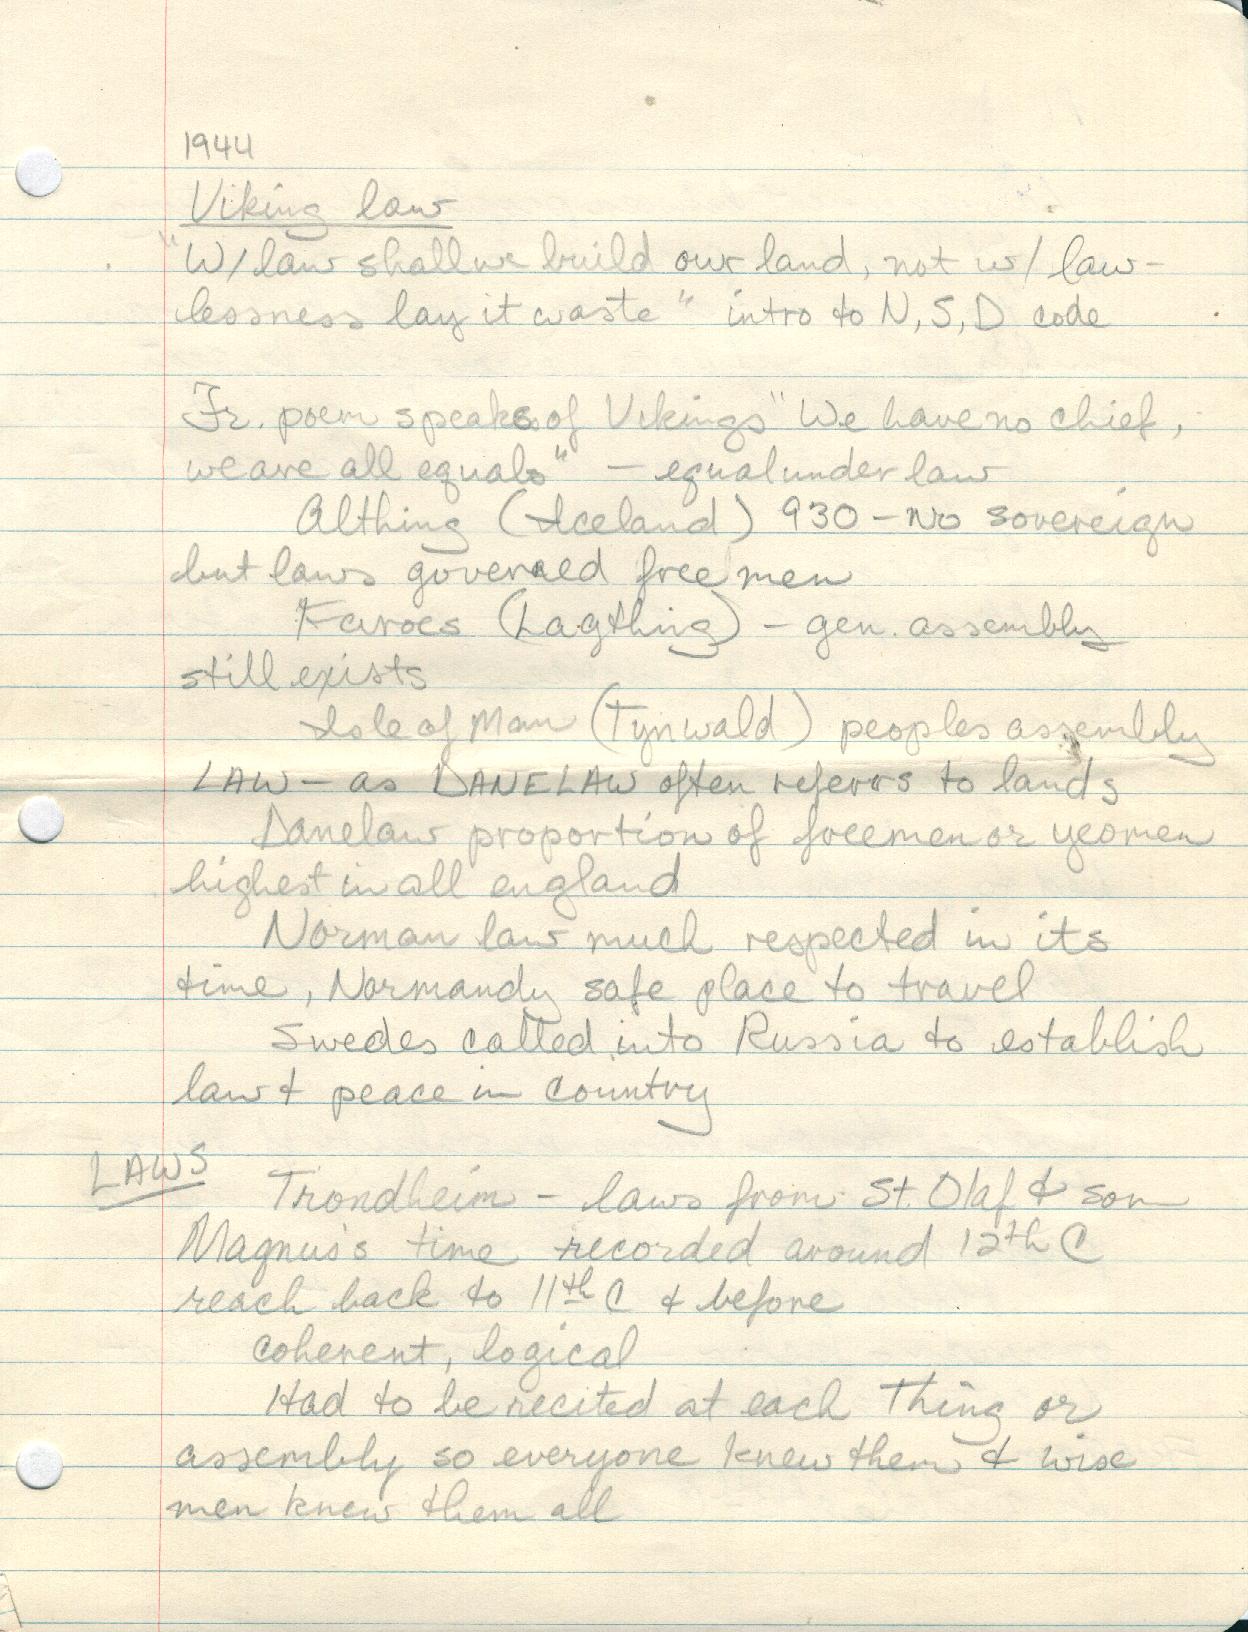 1944
Viking law
"W/law shall we build our land, not w/ law-
lessness lay it waste" intro to N, S, D code
Fr. poem speaks of Vikings "We have no chief,
we are all equals" — equal under law
Althing (Iceland) 930 – no sovereign
but laws governed free men
Faroes (Lagthing) – gen. assembly
still exists
Isle of Man (Tynwald) peoples assembly
LAW – as DANELAW often referrs to lands
Danelaw proportion of freemen or yeomen
highest in all england
Norman law much respected in its
time, Normandy safe place to travel
Swedes called into Russia to establish
law & peace in country
LAWS
Trondheim – laws from St. Olaf & son
Magnus's time recorded around 12th C
reach back to 11th C & before
coherent, logical
Had to be recited at each Thing or
assembly so everyone knew them & wise
men knew them all